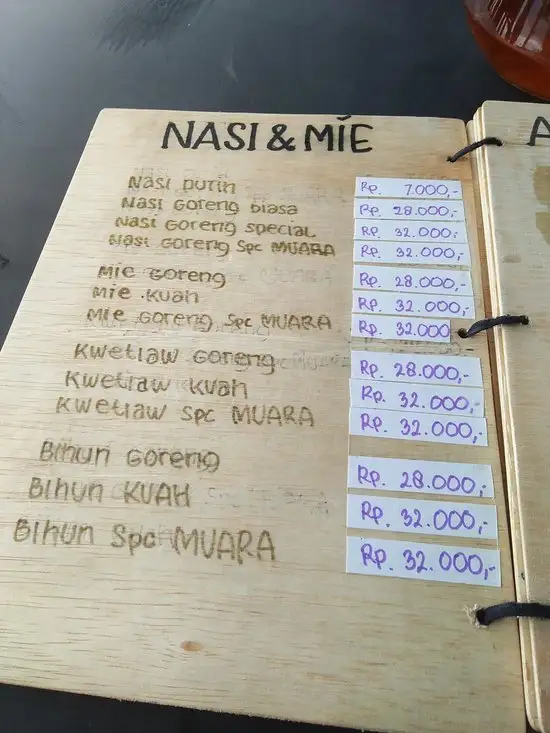 NASI & MIE
Nasi putih Rp. 7.000,-
Nasi Goreng biasa Rp. 28.000,-
Nasi Goreng special Rp. 32.000,-
Nasi Goreng Spc MUARA Rp. 32.000,-
Mie Goreng Rp. 28.000,-
Mie Kuah Rp. 32.000,-
Mie Goreng Spc MUARA Rp. 32.000
Kwetiaw Goreng Rp. 28.000,-
Kwetiaw Kuah Rp. 32.000,-
Kwetiaw Spc MUARA Rp. 32.000,-
Bihun Goreng Rp. 28.000,-
Bihun KUAH Rp. 32.000,-
Bihun Spc MUARA Rp. 32.000,-